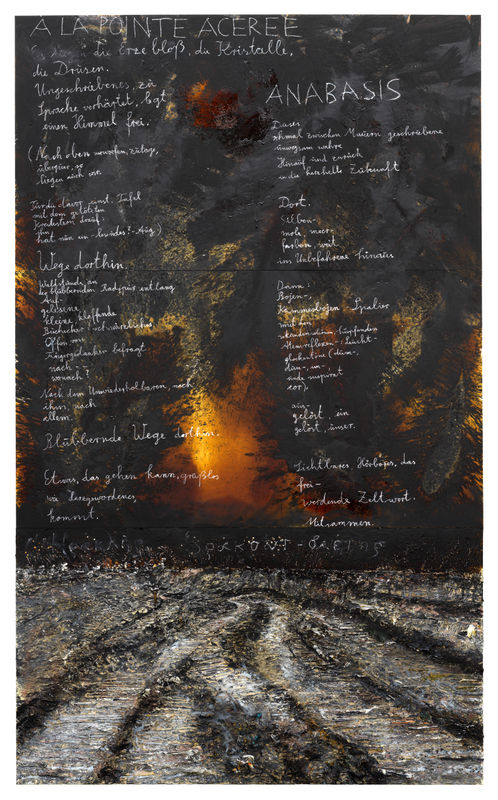 A LA POINTE ACEREE
die Erze bloß, die Kristalle,
die Drusen.
Ungeschriebenes, zu
Sprache verhärtet, legt
einen Himmel frei.
(Nach oben verworfen, zutage,
überquer, so
liegen auch wir.
Tür du davor einst, Tafel
mit dem getöteten
Kreidestern drauf:
ihn
hat nun ein - lesendes? - Aug.)
Wege dorthin.
Waldstunde an
der blubbernden Radspur entlang
Auf-
gelesene
kleine, klaffende
Buchecker: schwärzliches
Offen, von
Fingergedanken befragt
nach
wonach?
Nach dem Unwiederholbaren, nach
ihm, nach
allem.
Blubbernde Wege dorthin.
Etwas, das gehen kann, grußlos
wie Herzgewordenes,
kommt.
ANABASIS
Dieses
schmal zwischen Mauern geschriebene
unwegsam wahre
Hinauf und zurück
in die herzhelle Zukunft
Dort.
Silben-
mole, meer-
farben, weit
ins Unbefahrene hinaus
Dann:
Bojen-
Kummerbojen-Spalier
mit den
sekundenschön hüpfenden
Atemreflexen - Leucht-
glockentöne (dum-,
dun-, un-,
unde suspirat
cor),
aus-
gelöst, ein
gelöst, unser.
Sichtbares, Hörbares, das
frei-
werdende Zeltwort.
Mitsammen.